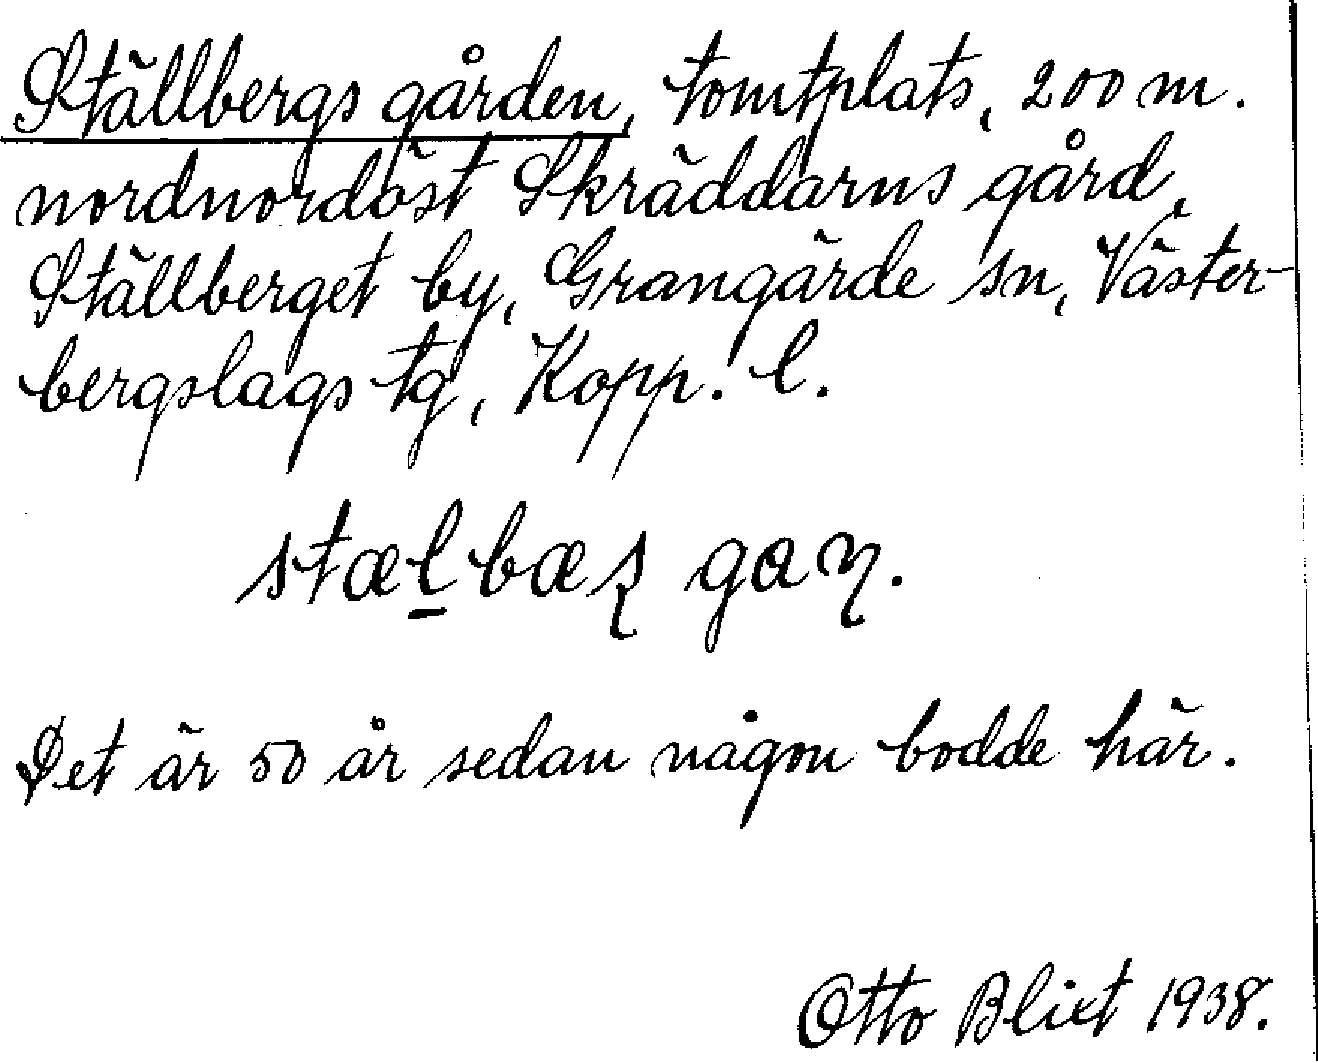 Ställbergs gården, tomtplats, 200 m.
nordnordöst Skräddarns gård,
Ställberget by, Grangärde sn, Väster-
bergslags tg, Kopp. l.
stæl̲bæʂ gaɳ.
Det är 50 år sedan någon bodde här.
Otto Blixt 1938.